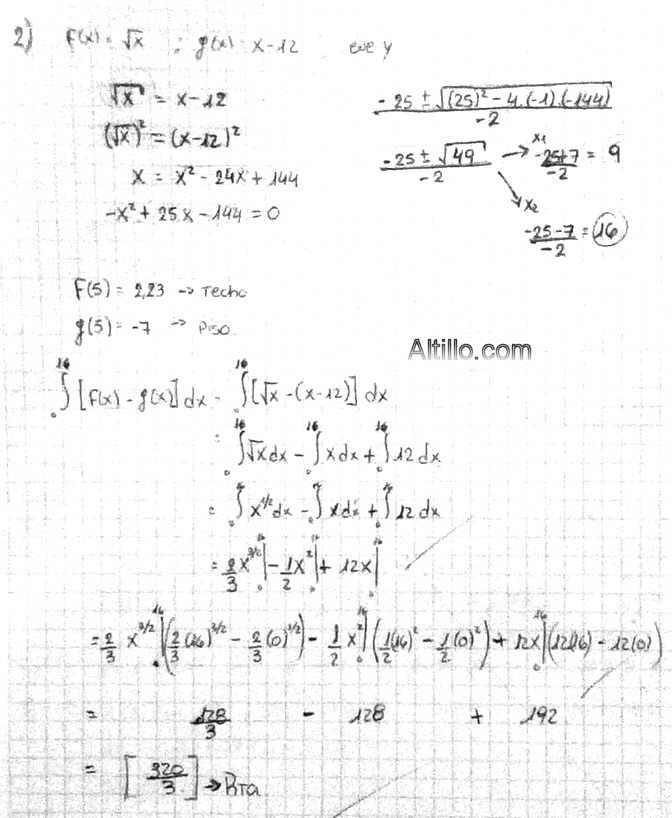 2) f(x) = √x ; g(x) = x-12 eje y
√x = x-12
(√x)² = (x-12)²
x = x² - 24x + 144
-x² + 25x - 144 = 0
-25 ± √((25)² - 4.(-1).(-144))
-2
-25 ± √49 → x₁ -25+7 = 9
-2 -2
x₂
-25-7 = 16
-2
f(5) = 2,23 → Techo
g(5) = -7 → Piso.
Altillo.com
∫₀¹⁶ [f(x) - g(x)] dx = ∫₀¹⁶ [√x - (x-12)] dx
= ∫₀¹⁶ √x dx - ∫₀¹⁶ x dx + ∫₀¹⁶ 12 dx
= ∫₀¹⁶ x^1/2 dx - ∫₀¹⁶ x dx + ∫₀¹⁶ 12 dx
= 2/3 x^3/2 |₀¹⁶ - 1/2 x² |₀¹⁶ + 12x |₀¹⁶
= 2/3 x^3/2 |₀¹⁶ (2/3 (16)^3/2 - 2/3 (0)^3/2) - 1/2 x² |₀¹⁶ (1/2 (16)² - 1/2 (0)²) + 12x |₀¹⁶ (12(16) - 12(0))
= 128/3 - 128 + 192
= [320/3] → Rta.